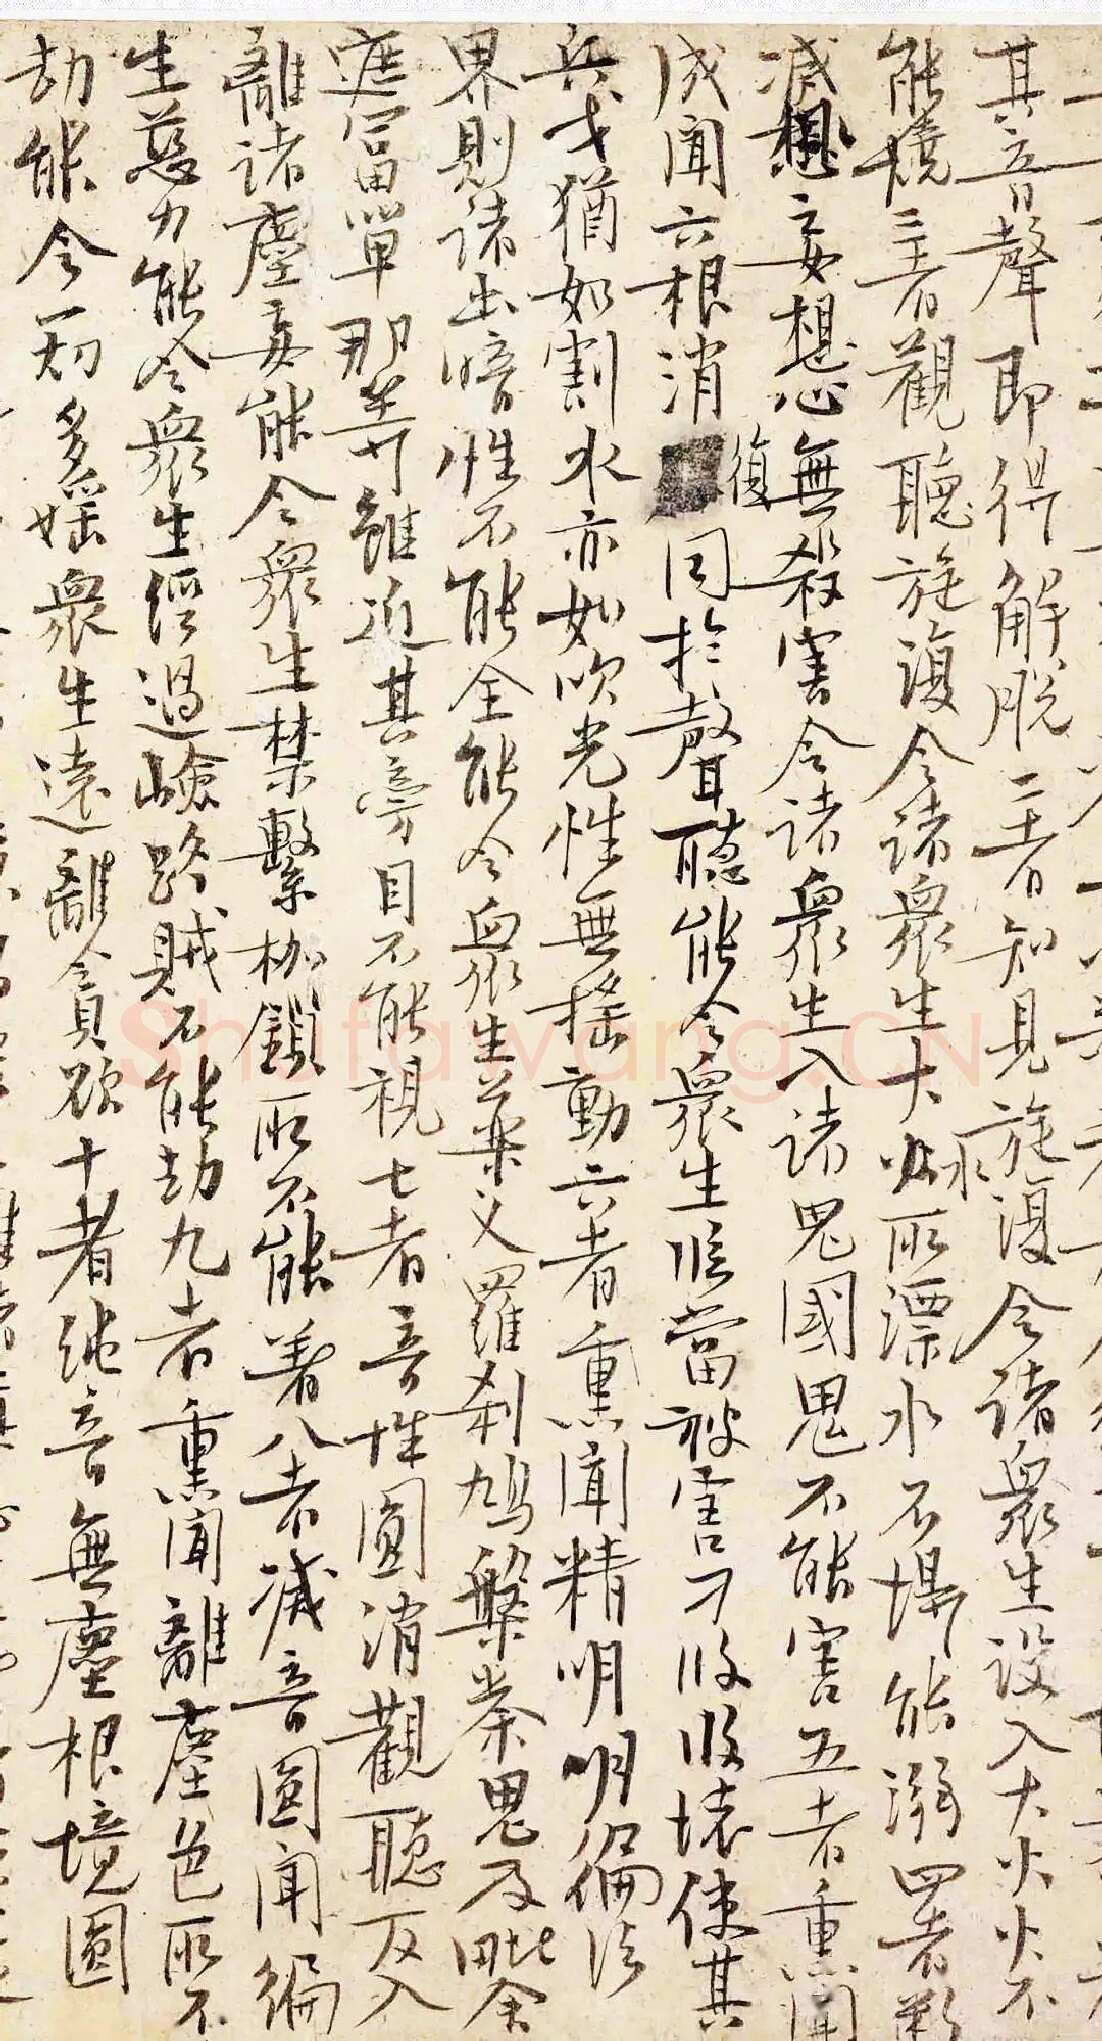 其音聲即得解脫二者知見旋復令諸衆生設入大火火不
能燒三者觀聽旋復令諸衆生大水所漂水不能溺四者斷
滅妄想心無殺害令諸衆生入諸鬼國鬼不能害五者熏聞
成聞六根消復同於聲聽能令衆生臨當被害刀段段壞使其
兵戈猶如割水亦如吹光性無搖動六者熏聞精明明徧法
界則諸幽暗性不能全能令衆生藥叉羅刹鳩槃荼鬼及毗舍
遮富單那等雖近其旁目不能視七者音性圓消觀聽反入
離諸塵妄能令衆生禁繫枷鎖所不能著八者滅音圓聞徧
生慈力能令衆生經過嶮路賊不能劫九者熏聞離塵色所不
劫能令一切多婬衆生遠離貪欲十者純音無塵根境圓
Shufawang.CN